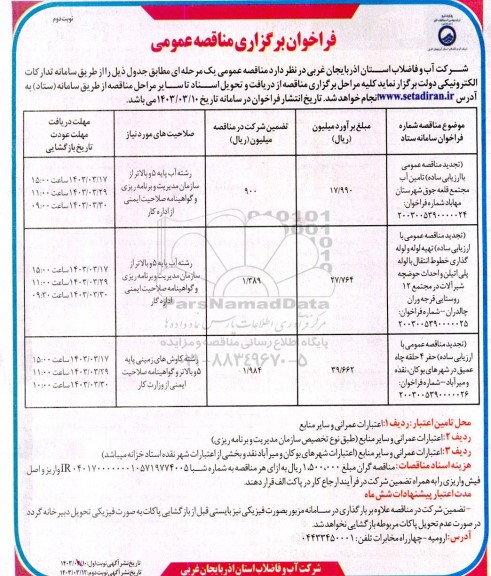 نوبت دوم
فراخوان برگزاری مناقصه عمومی
شرکت آب و فاضلاب استان اذربایجان غربی در نظر دارد مناقصه عمومی یک مرحله ای مطابق جدول ذیل را از طریق سامانه تدارکات
الکترونیکی دولت برگزار نماید کلیه مراحل برگزاری مناقصه از دریافت و تحویل اسناد تا سایر مراحل مناقصه از طریق سامانه (ستاد) به
آدرس www.setadiran.ir انجام خواهد شد. تاریخ انتشار فراخوان در سامانه تاریخ ۱۴۰۳/۰۳/۱۰ می باشد.
موضوع مناقصه شماره فراخوان سامانه ستاد
مبلغ برآورد میلیون (ریال)
تضمین شرکت در مناقصه میلیون (ریال)
صلاحیت های مورد نیاز
مهلت دریافت
مهلت عودت
تاریخ بازگشایی
(تجدید مناقصه عمومی
با ارزیابی ساده) تامین آب
مجتمع قلعه جوق شهرستان
مهاباد شماره فراخوان:
۲۰۰۳۰۰۵۳۹۰۰۰۰۰۲۴
۱۷/۹۹۰
۹۰۰
رشته آب پایه ۵ و بالاتر از
سازمان مدیریت و برنامه ریزی
و گواهینامه صلاحیت ایمنی
از اداره کار
۱۴۰۳/۰۳/۱۷ ساعت ۱۵:۰۰
۱۴۰۳/۰۳/۲۹ ساعت ۱۱:۰۰
۱۴۰۳/۰۳/۳۰ ساعت ۰۹:۰۰
(تجدید مناقصه عمومی با
ارزیابی ساده) تهیه لوله و لوله
گذاری خطوط انتقال با لوله
پلی اتیلن و احداث حوضچه
شیرآلات در مجتمع ۱۲
روستایی قرجه وران
چالدران - شماره فراخوان:
۲۰۰۳۰۰۵۳۹۰۰۰۰۰۲۵
۲۷/۷۶۴
۱/۳۸۹
رشته آب پایه ۵ و بالاتر از
سازمان مدیریت و برنامه ریزی
و گواهینامه صلاحیت ایمنی
از اداره کار
۱۴۰۳/۰۳/۱۷ ساعت ۱۵:۰۰
۱۴۰۳/۰۳/۲۹ ساعت ۱۱:۰۰
۱۴۰۳/۰۳/۳۰ ساعت ۰۹:۳۰
(تجدید مناقصه عمومی با
ارزیابی ساده) حفر ۴ حلقه چاه
عمیق در شهرهای بوکان، نقده
و میرآباد - شماره فراخوان:
۲۰۰۳۰۰۵۳۹۰۰۰۰۰۲۶
۳۹/۶۶۲
۱/۹۸۴
رشته کاوش های زمینی پایه
۵ و بالاتر و گواهینامه صلاحیت
ایمنی از وزارت کار
۱۴۰۳/۰۳/۱۷ ساعت ۱۵:۰۰
۱۴۰۳/۰۳/۲۹ ساعت ۱۱:۰۰
۱۴۰۳/۰۳/۳۰ ساعت ۱۰:۰۰
ParsNamadData
مرکز فرآوری اطلاعات پارس نماد داده ها
پایگاه اطلاع رسانی مناقصه و مزایده
۰۲۱-۸۸۳۴۹۶۷۰-۵
محل تامین اعتبار: ردیف ۱: اعتبارات عمرانی و سایر منابع
ردیف ۲: اعتبارات عمرانی و سایر منابع (طبق نوع تخصیص سازمان مدیریت و برنامه ریزی)
ردیف ۳: اعتبارات عمرانی و سایر منابع (اعتبارات شهرهای بوکان و میرآباد نقد و بخشی از اعتبارات شهر نقده اسناد خزانه میباشد)
هزینه اسناد مناقصات: مناقصه گران مبلغ ۱,۵۰۰,۰۰۰ ریال به ازای هر مناقصه به شماره شبا IR واریز و اصل
فیش واریزی را به همراه تضمین شرکت در فرآیند ارجاع کار در پاکت الف قرار دهند.
مدت اعتبار پیشنهادات شش ماه
- تضمین شرکت در مناقصه علاوه بر بارگذاری در سامانه مزبور بصورت فیزیکی نیز بایستی قبل از بازگشایی پاکات به صورت فیزیکی تحویل دبیرخانه گردد
در صورت عدم تحویل پاکات مربوطه بازگشایی نخواهد شد.
آدرس: ارومیه - چهارراه مخابرات تلفن: ۰۴۴۳۳۴۵۰۰۰۱
شرکت آب و فاضلاب استان اذربایجان غربی
تاریخ نشر آگهی نوبت اول: ۱۴۰۳/۰۳/۱۰
تاریخ نشر آگهی نوبت دوم: ۱۴۰۳/۰۳/۱۲